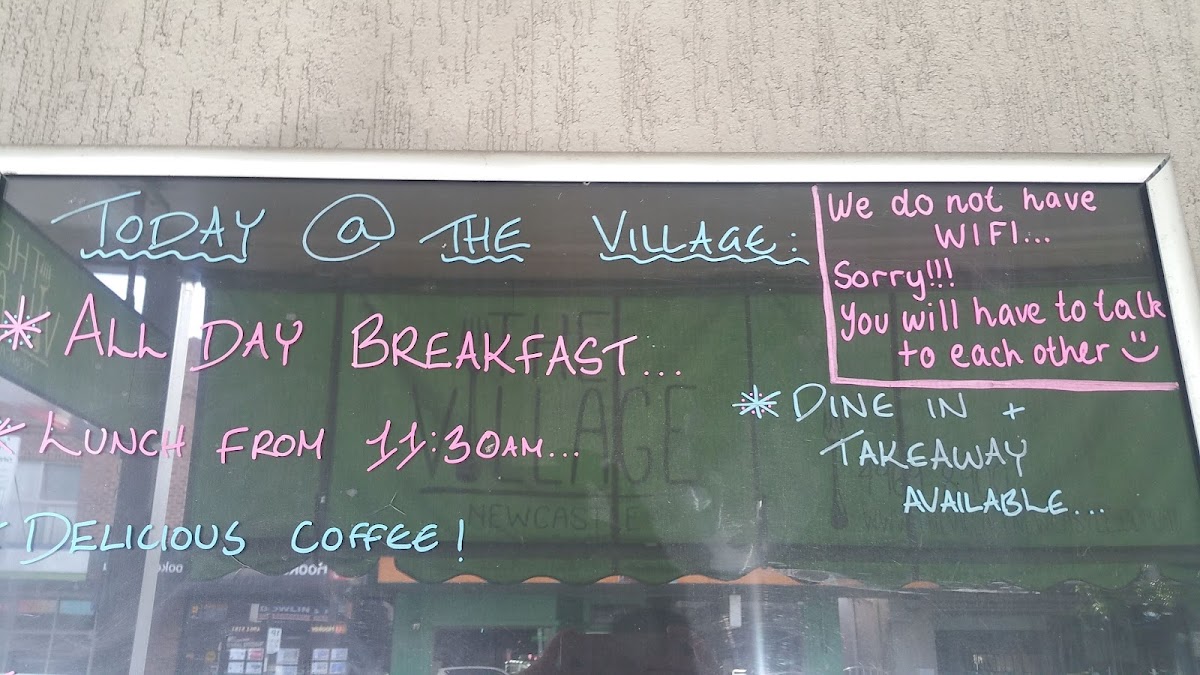 TODAY @ THE VILLAGE:
We do not have
WIFI...
Sorry!!!
You will have to talk
to each other
* ALL DAY BREAKFAST...
* LUNCH FROM 11:30AM...
DELICIOUS COFFEE!
* DINE IN +
TAKEAWAY
AVAILABLE...
THE
VILLAGE
NEWCASTLE